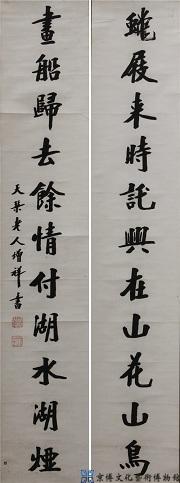 蠟屐来時託興在山花山鳥
畫船歸去餘情付湖水湖煙
天琹老人增祥書
京博文化藝術博物館